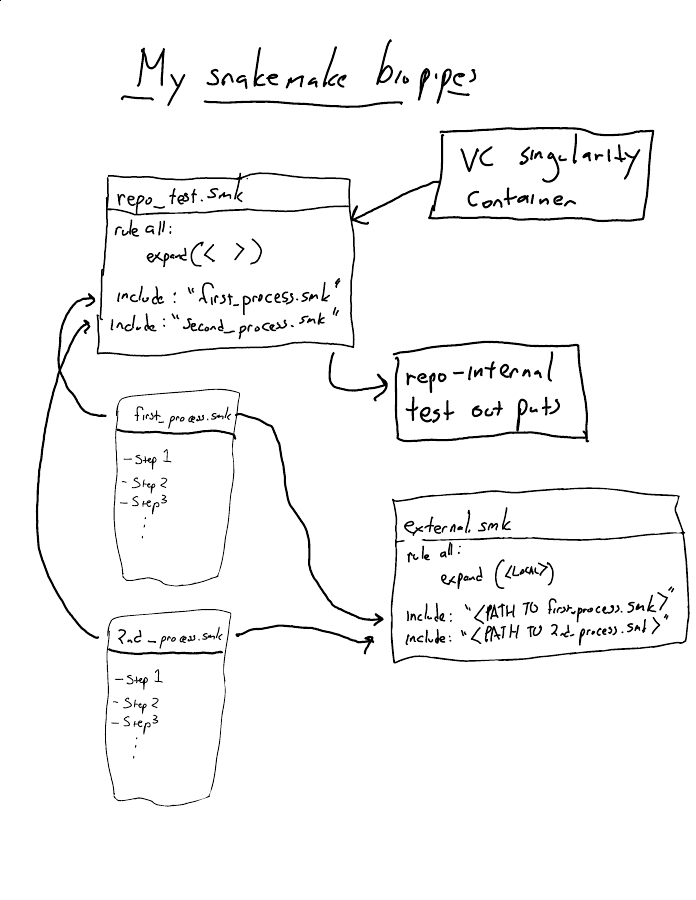 My snakemake biopipes
VC singularity
Container
repo_test.smk
rule all:
expand(< >)
include: "first_process.smk"
include: "second_process.smk"
repo-internal
test out puts
first_process.smk
- Step 1
- Step 2
- Step 3
external.smk
rule all:
expand (<LOCAL>)
include: "<PATH TO first_process.smk>"
include: "<PATH TO 2nd_process.smk>"
2nd_process.smk
- Step 1
- Step 2
- Step 3